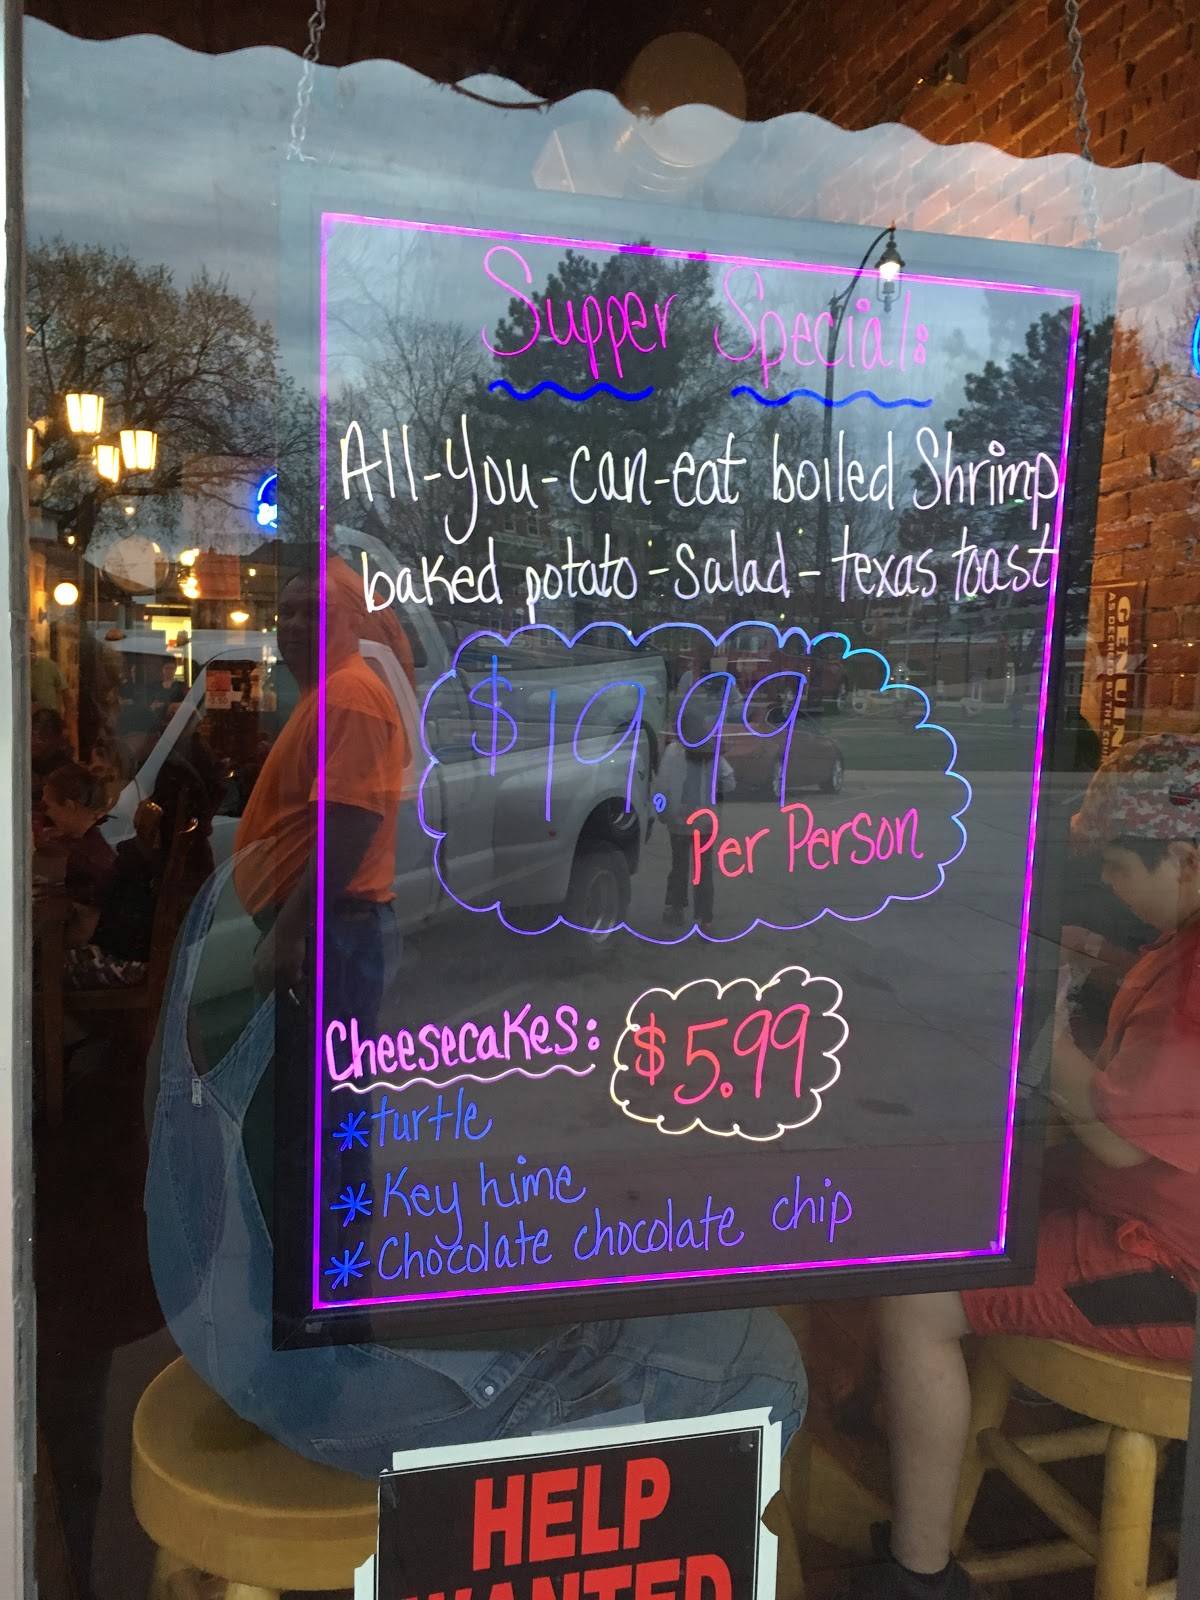 Supper Special:
All-You-can-eat boiled Shrimp
baked potato-Salad-texas toast
$19.99
Per Person
Cheesecakes: $5.99
*turtle
*Key hime
*Chocolate chocolate chip
HELP
WANTED
GENUINE